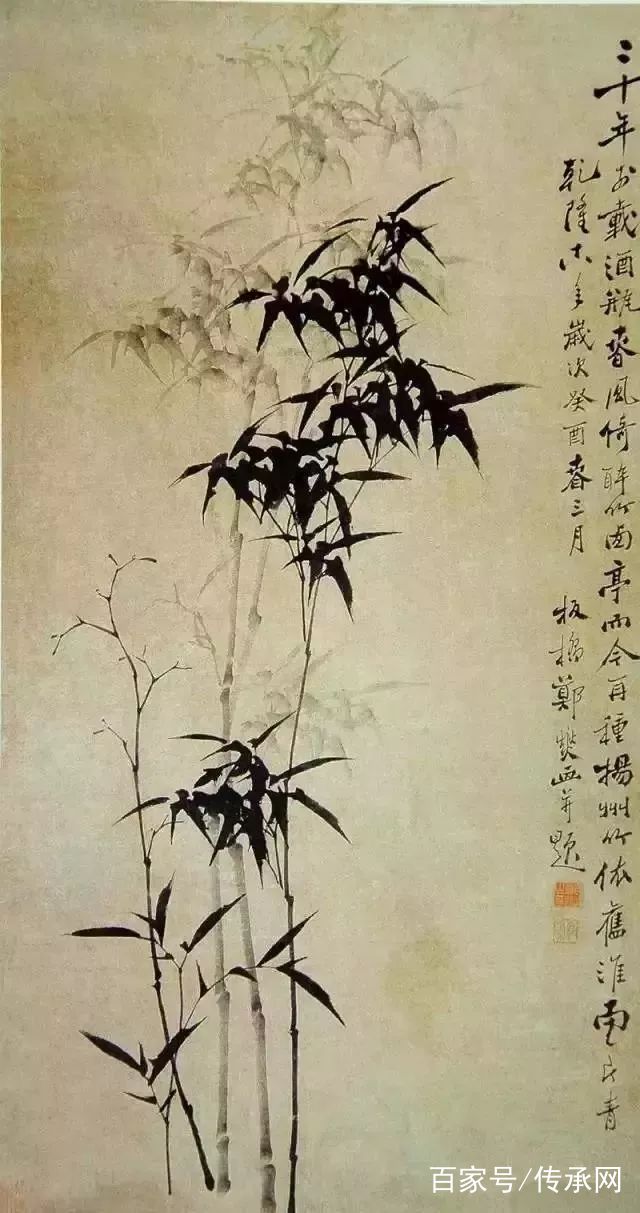 二十年前載酒瓶春風倚醉竹西亭而今再種揚州竹依舊淮南一片青
乾隆十八年歲次癸酉春三月
板橋鄭燮画并題
百家号/传承网